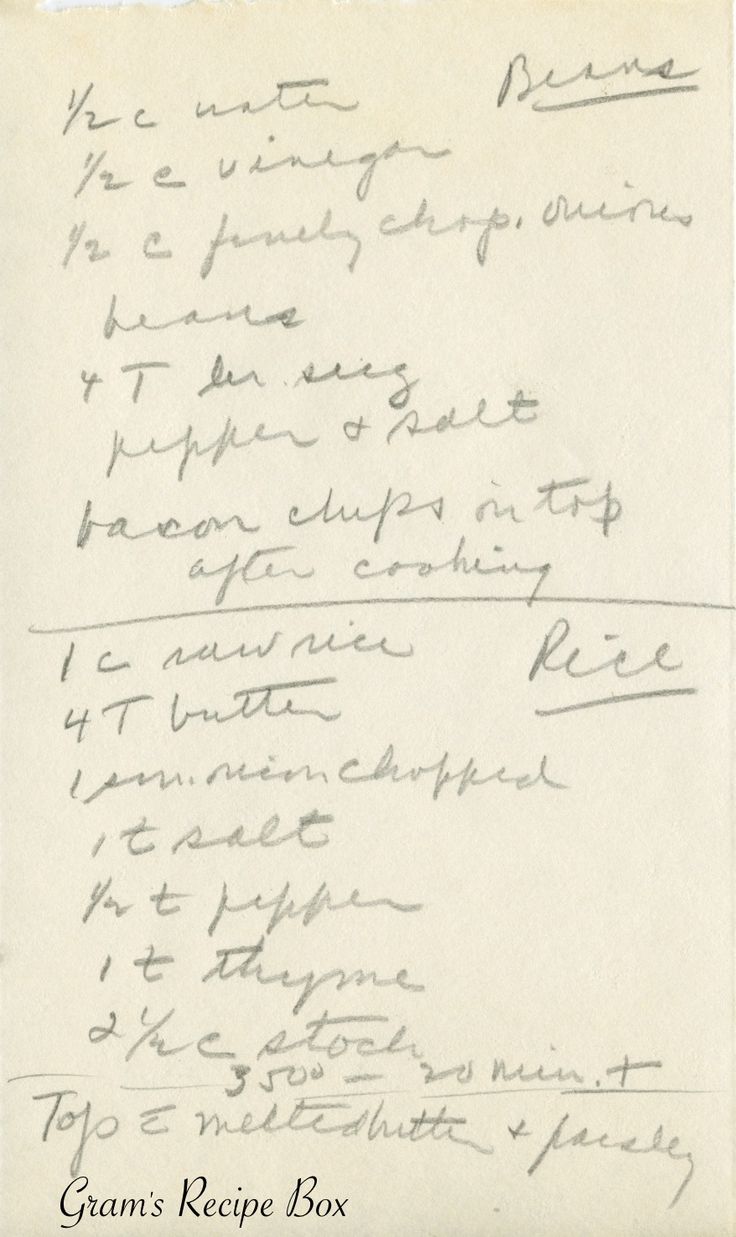 Beans
1/2 c water
1/2 c vinegar
1/2 c finely chop. onions
beans
4 T br. sug
pepper + salt
bacon chips on top
after cooking
Rice
1 c raw rice
4 T butter
1 sm. onion chopped
1 t salt
1/2 t pepper
1 t thyme
2 1/2 c stock
350° — 20 min. +
Top c̄ melted butter + parsley
Gram's Recipe Box